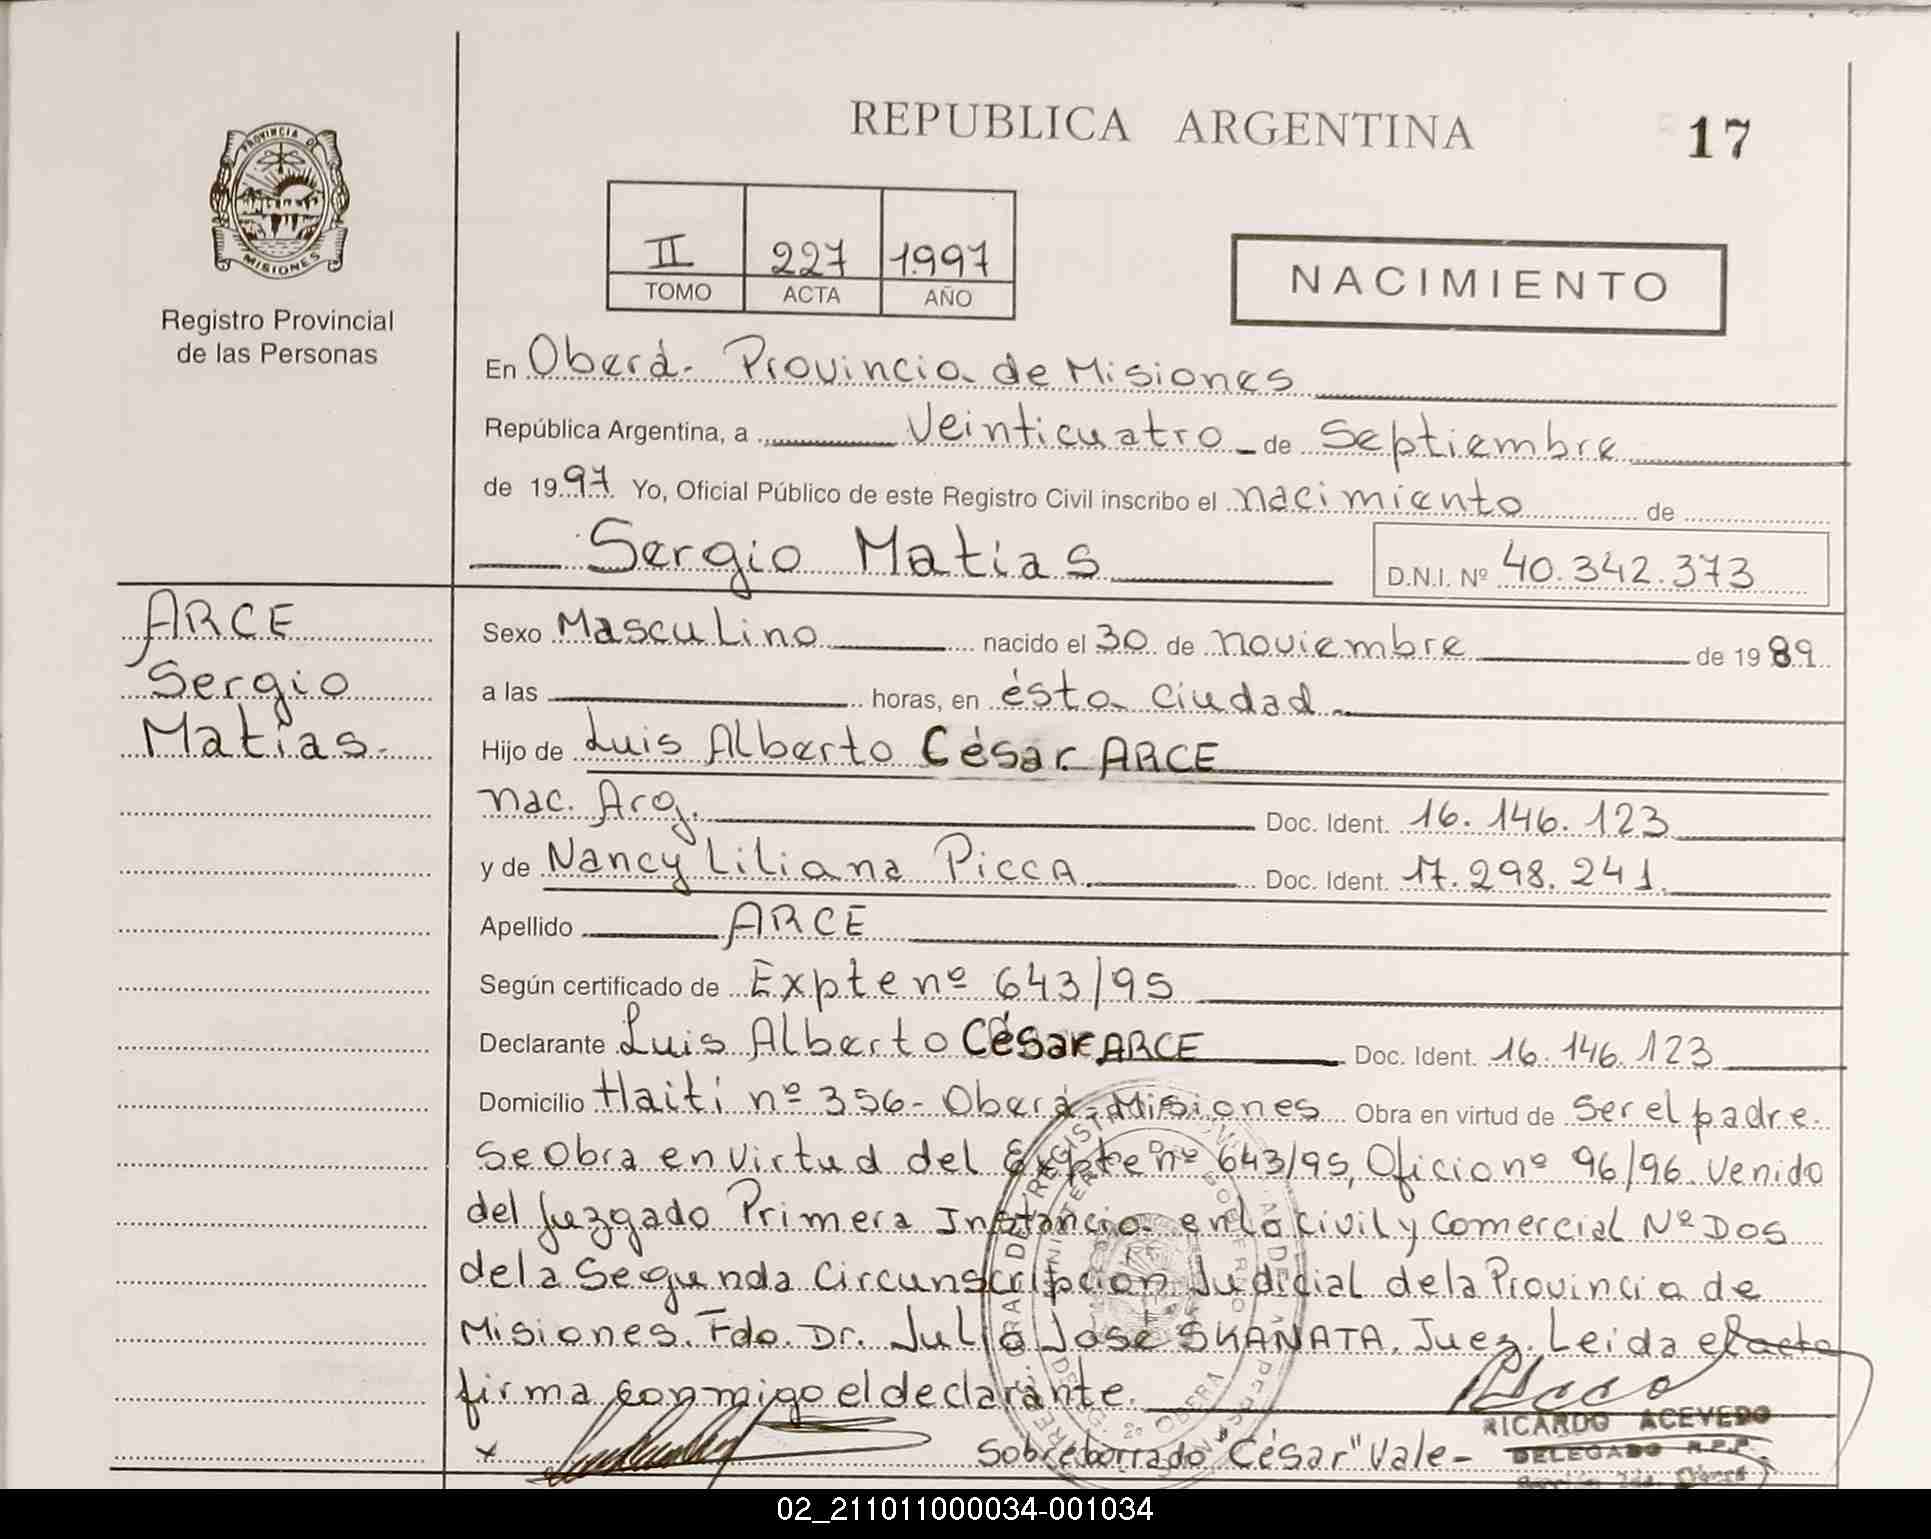 REPUBLICA ARGENTINA
17
PROVINCIA DE
MISIONES
Registro Provincial
de las Personas
II 227 1997
TOMO ACTA AÑO
NACIMIENTO
En Oberá. Provincia de Misiones
República Argentina, a Veinticuatro de Septiembre
de 1997 Yo, Oficial Público de este Registro Civil inscribo el nacimiento de
Sergio Matias
D.N.I. Nº 40.342.373
ARCE
Sergio
Matias.
Sexo Masculino nacido el 30 de noviembre de 1989
a las horas, en ésta ciudad.
Hijo de Luis Alberto César ARCE
nac. Arg. Doc. Ident. 16.146.123
y de Nancy Liliana Picca Doc. Ident. 17.298.241.
Apellido ARCE
Según certificado de Expte nº 643/95
Declarante Luis Alberto César ARCE Doc. Ident. 16.146.123
Domicilio Haití nº 356- Oberá-Misiones Obra en virtud de Ser el padre.
Se Obra en virtud del Expte nº 643/95, Oficio nº 96/96. Venido
del Juzgado Primera Instancia en lo civil y Comercial Nº Dos
de la Segunda Circunscripcion Judicial de la Provincia de
Misiones. Fdo. Dr. Julio José SKANATA. Juez. Leida el acta
firma conmigo el declarante.
x Sobreborrado "César" Vale-
RICARDO ACEVEDO
DELEGADO R.P.P.
02_211011000034-001034